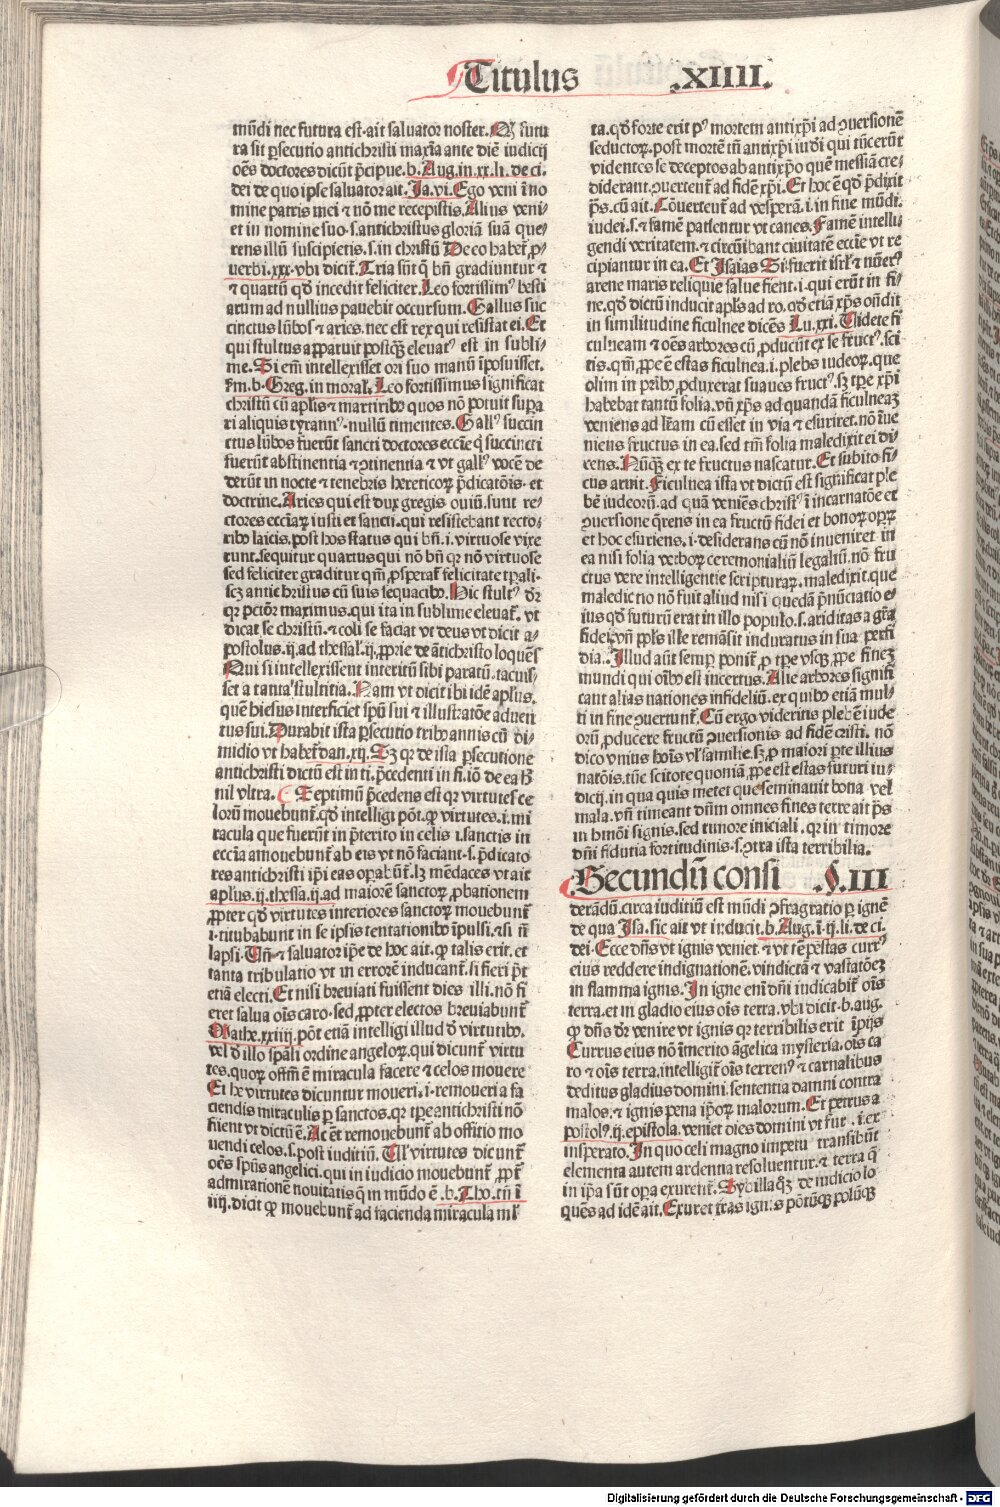 Titulus .XIIII.
mūdi nec futura est. ait saluator noster. Qꝫ futu
ra sit ꝑsecutio antichristi maxīa ante diē iudicij
oēs doctores dicūt p̄cipue. b. Aug. in. xx. li. de ci.
dei de quo ipse saluator ait. Ja. vi. Ego veni ī no
mine patris mei ⁊ nō me recepistis. Alius veni-
et in nomine suo. s. antichristus gloriā suā que-
rens illū suscipietis. s. in christū De eo habet̄ ꝓ-
uerbi. xxx. vbi dicit̄. Tria sūt q̄ bn̄ gradiuntur ⁊
⁊ quartū qd̄ incedit feliciter. Leo fortissimꝰ besti
arum ad nullius pauebit occursum. Gallus suc
cinctus lūbos ⁊ aries. nec est rex qui resistat ei. Et
qui stultus apparuit postqꝫ eleuatꝰ est in subli
me. Si em̄ intellexisset ori suo manū īposuisset.
Fm. b. Greg. in moral. Leo fortissimus significat
christū cū aplis ⁊ martiribꝰ quos nō potuit supa
ri aliquis tyrannꝰ nullū timentes. Gallꝰ succin
ctus lūbos fuerūt sancti doctores eccīe q̄ succincti
fuerūt abstinentia ⁊ ꝯtinentia ⁊ vt gallꝰ vocē de
derūt in nocte ⁊ tenebris hereticoꝝ p̄dicatōis. et
doctrine. Aries qui est dux gregis ouiū. sunt re-
ctores eccīaꝝ iusti et sancti. qui resistebant recto-
ribꝰ laicis. post hos status qui bn̄. i. virtuose vixe
runt. sequitur quartus qui nō bn̄ qꝛ nō virtuose
sed feliciter graditur qm̄ ꝓsperat̄ felicitate tp̄ali.
scꝫ antichristus cū suis sequacibꝰ. Hic stultꝰ dr̄
qꝛ pctōr maximus. qui ita in sublime eleuat̄. vt
dicat se christū. ⁊ coli se faciat vt deus vt dicit a-
postolus. ij. ad thessal. ij. ꝓprie de ātichristo loquēs
Qui si intellexissent interitū sibi paratū. tacuis-
set a tanta stultitia. Nam vt dicit ibi idē aplus.
quē hiesus interficiet spū sui ⁊ illustratōe aduen
tus sui. Durabit ista ꝑsecutio tribꝰ annis cū di-
midio vt habet̄ dan. xij. Sꝫ qꝛ de ista ꝑsecutione
antichristi dictū est in ti. p̄cedenti in fi. iō de ea h
nil vltra. Septimū p̄cedens est qꝛ virtutes ce
lorū mouebunt̄. qd̄ intelligi pōt. ꝙ virtutes. i. mi
racula que fuerūt in p̄terito in celis. i. sanctis in
eccīa amouebunt̄ ab eis vt nō faciant. s. p̄dicato
res antichristi ip̄i eas oꝑabūt̄. lꝫ mēdaces vt ait
aplus. ij. thessa. ij. ad maiorē sanctoꝝ ꝓbationem
ꝓpter qd̄ virtutes interiores sanctoꝝ mouebunt̄
i. titubabunt in se ipsis tentationibꝰ īpulsi. ⁊ si n̄
lapsi. Vn̄ ⁊ saluator ip̄e de hoc ait. ꝙ talis erit. et
tanta tribulatio vt in errorē inducant̄. si fieri p̄t
etiā electi. Et nisi breuiati fuissent dies illi. nō fi
eret salua oīs caro. sed ꝓpter electos breuiabunt̄
Mathe. xxiiij. pōt etiā intelligi illud d̄ virtutibꝰ.
vel d̄ illo spāli ordine angeloꝝ. qui dicunt̄ virtu
tes. quoꝝ offm̄ ē miracula facere ⁊ celos mouere
Et he virtutes dicuntur moueri. i. remoueri a fa
ciendis miraculis ꝑ sanctos. qꝛ tp̄e antichristi nō
fiient vt dictū ē. Ac ēt remouebunt̄ ab offitio mo
uendi celos. s. post iuditiū. Ul̓ virtutes dicunt̄
oēs spūs angelici. qui in iudicio mouebunt̄ ꝓpt̄
admirationē nouitatis q̄ in mūdo ē. b. Tho. tn̄ ī
iiij. dicit ꝙ mouebunt̄ ad facienda miracula ml̓
ta. qd̄ forte erit pꝰ mortem antixp̄i ad ꝯuersionē
seductoꝝ. post mortē tn̄ antixp̄i iudi qui tūc erūt
videntes se deceptos ab antixp̄o quē messiā cre-
diderant. ꝯuertent̄ ad fidē xp̄i. Et hoc ē qd̄ p̄dixit
p̄s. cū ait. Cōuertent̄ ad vesperā. i. in fine mūdi.
iudei. s. ⁊ famē patientur vt canes. Famē intelli-
gendi veritatem. ⁊ circūibant ciuitatē eccīe vt re
cipiantur in ea. Et Isaias Si fuerit isrl̓ ⁊ nūerꝰ
arene maris reliquie salue fient. i. qui erūt in fi-
ne. qd̄ dictū inducit apl̓s ad ro. qd̄ etiā xp̄s on̄dit
in similitudine ficulnee dicēs Lu. xxi. Videte fi
culneam ⁊ oēs arbores cū ꝓducūt ex se fructꝰ. sci
tis. qm̄ ꝓpe ē estas ficulnea. i. plebs iudeoꝝ. que
olim in pribꝰ ꝓduxerat suaues fructꝰ. sꝫ tp̄e xp̄i
habebat tantū folia. vn̄ xp̄s ad quandā ficulneaꝫ
veniens ad lr̄am cū esset in via ⁊ esuriret. nō īue
niens fructus in ea. sed tm̄ folia maledixit ei di
cens. Nūqꝫ ex te fructus nascatur. Et subito fi-
cus aruit. Ficulnea ista vt dictū est significat ple
bē iudeorū. ad quā veniēs christꝰ ī incarnatōe et
ꝯuersione q̄rens in ea fructū fidei et bonoꝝ opꝝ
et hoc esuriens. i. desiderans cū nō inueniret in
ea nisi folia verboꝝ ceremonialiū legaliū. nō fru
ctus vere intelligentie scripturaꝝ. maledixit. que
maledictio nō fuit aliud nisi quedā p̄nūciatio e-
ius qd̄ futurū erat in illo populo. s. ariditas a grā
fidei. vn̄ ppl̓s ille remāsit induratus in sua perfi
dia. Illud aūt semꝑ ponit̄ ꝓ tp̄e vsqꝫ ꝓpe finez
mundi qui oībꝰ est incertus. Alie arbores signifi
cant alias nationes infideliū. ex quibꝰ etiā mul-
ti in fine ꝯuertunt̄. Cū ergo videritis plebē iude
orū ꝓducere fructū ꝯuersionis ad fidē cristi. nō
dico vnius hoīs vl̓ familie. sꝫ ꝓ maiori parte illius
natōis. tūc scitote quoniā ꝓpe est estas futuri iu-
dicij. in qua quis metet que seminauit bona vel
mala. vn̄ timeant dn̄m omnes fines terre ait p̄s
in hmōi signis. sed timore iniciali. qꝛ in timore
dn̄i fidutia fortitudinis. s. ꝯtra ista terribilia.
Secundū consi .§. III
derādū. circa iuditiū est mūdi ꝯfragratio ꝑ ignē
de qua Isa. sic ait vt inducit. b. Aug. ī. ij. li. de ci.
dei. Ecce dn̄s vt ignis veniet. ⁊ vt tēpestas currꝰ
eius reddere indignationē. vindictā ⁊ vastatōeꝫ
in flamma ignis. In igne eni dn̄i indicabit̄ oīs
terra. et in gladio eius oīs terra. vbi dicit. b. aug.
ꝙ dn̄s dr̄ venire vt ignis qꝛ terribilis erit īpijs
Currus eius nō īmerito āgelica mysteria. oīs ca
ro ⁊ oīs terra. intelligit̄ oīs terrenꝰ ⁊ carnalibus
deditus gladius domini. sententia damni contra
malos. ⁊ ignis pena ip̄oꝝ malorum. Et petrus a
postolꝰ. ij. epistola. veniet dies domini vt fur. i. ex
insperato. In quo celi magno impetu transibūt
elementa autem ardentia resoluentur. ⁊ terra q̄
in ip̄a sūt oꝑa exurent̄. Sybilla qꝫ de iudicio lo
quēs ad idē ait. Exuret tr̄as ignis pōtūqꝫ polūqꝫ
Digitalisierung gefördert durch die Deutsche Forschungsgemeinschaft - DFG